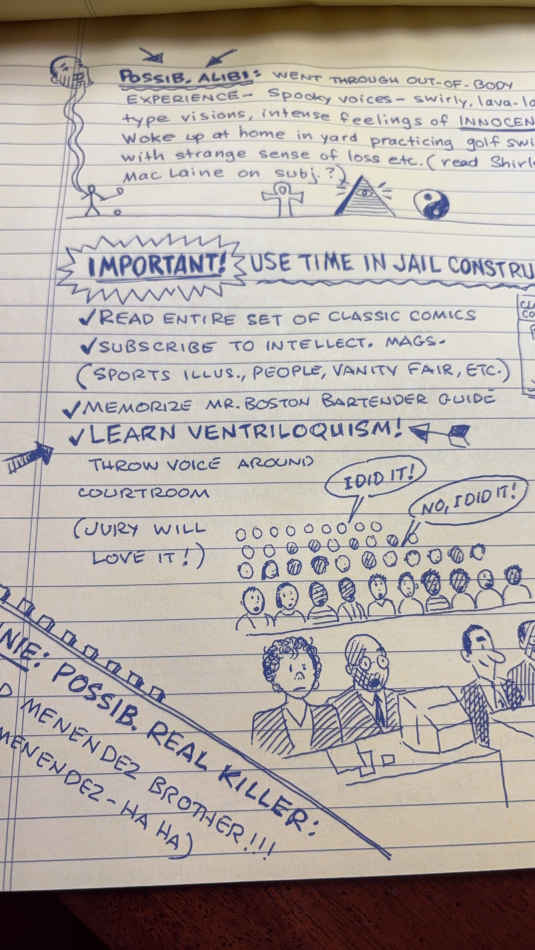 POSSIB. ALIBI: WENT THROUGH OUT-OF-BODY
EXPERIENCE- Spooky voices- swirly, lava-la
type visions, intense feelings of INNOCEN
Woke up at home in yard practicing golf swi
with strange sense of loss etc. (read Shirl
Mac Laine on subj.?)
IMPORTANT! USE TIME IN JAIL CONSTRU
✓READ ENTIRE SET OF CLASSIC COMICS
✓SUBSCRIBE TO INTELLECT. MAGS.
(SPORTS ILLUS., PEOPLE, VANITY FAIR, ETC.)
✓MEMORIZE MR. BOSTON BARTENDER GUIDE
✓LEARN VENTRILOQUISM!
THROW VOICE AROUND
COURTROOM
(JURY WILL
LOVE IT!)
I DID IT!
NO, I DID IT!
NIE: POSSIB. REAL KILLER:
D MENENDEZ BROTHER!!!
MENENDEZ- HA HA)